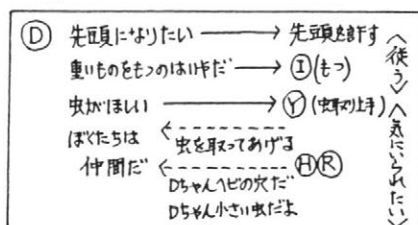 Ⓓ 先頭になりたい → 先頭を許す
重いものをもつのはいやだ → Ⓘ(もつ)
虫がほしい → Ⓨ(虫取り上手)
ぼくたちは 仲間だ
虫を取ってあげる
ⒽⓇ
Dちゃんヘビの穴だ
Dちゃん小さい虫だよ
〈使う〉
〈気にいられたい〉